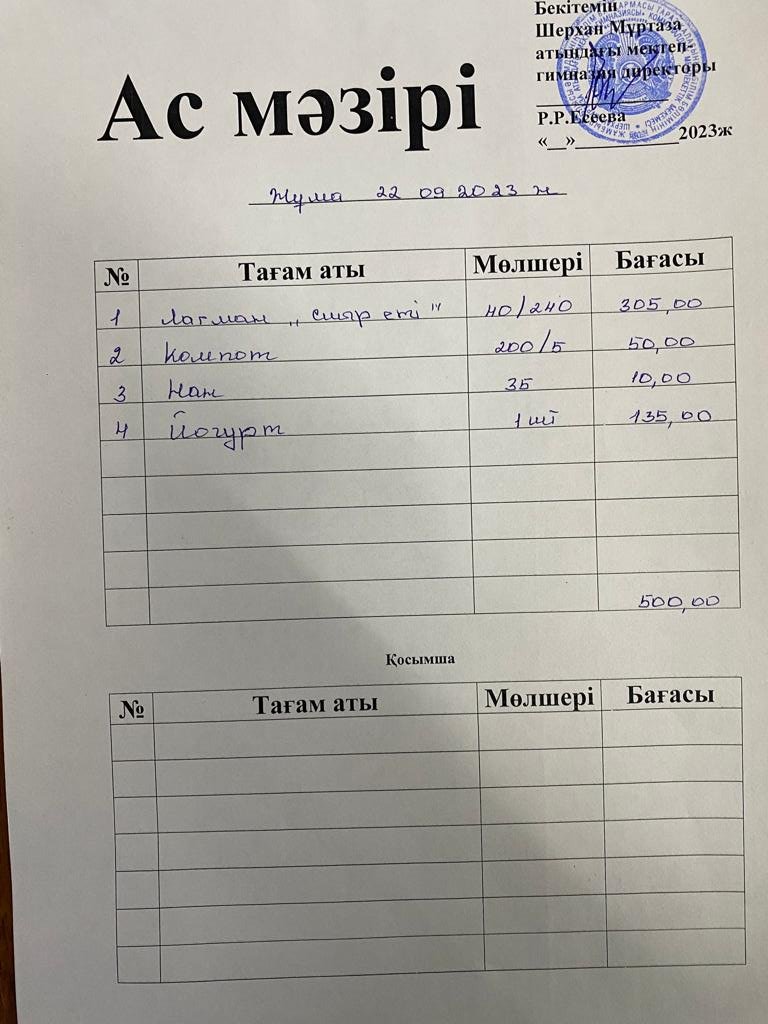 Бекітемін
Шерхан Мұртаза
атындағы мектеп-
гимназия директоры
Р.Р.Есеева
«__»___________2023ж
Ас мәзірі
Жұма 22 09 2023 ж
№ Тағам аты Мөлшері Бағасы
1 Лагман „ сиыр еті " 40/240 305,00
2 Компот 200/5 50,00
3 Нан 35 10,00
4 Йогурт 1 шт 135,00
500,00
Қосымша
№ Тағам аты Мөлшері Бағасы